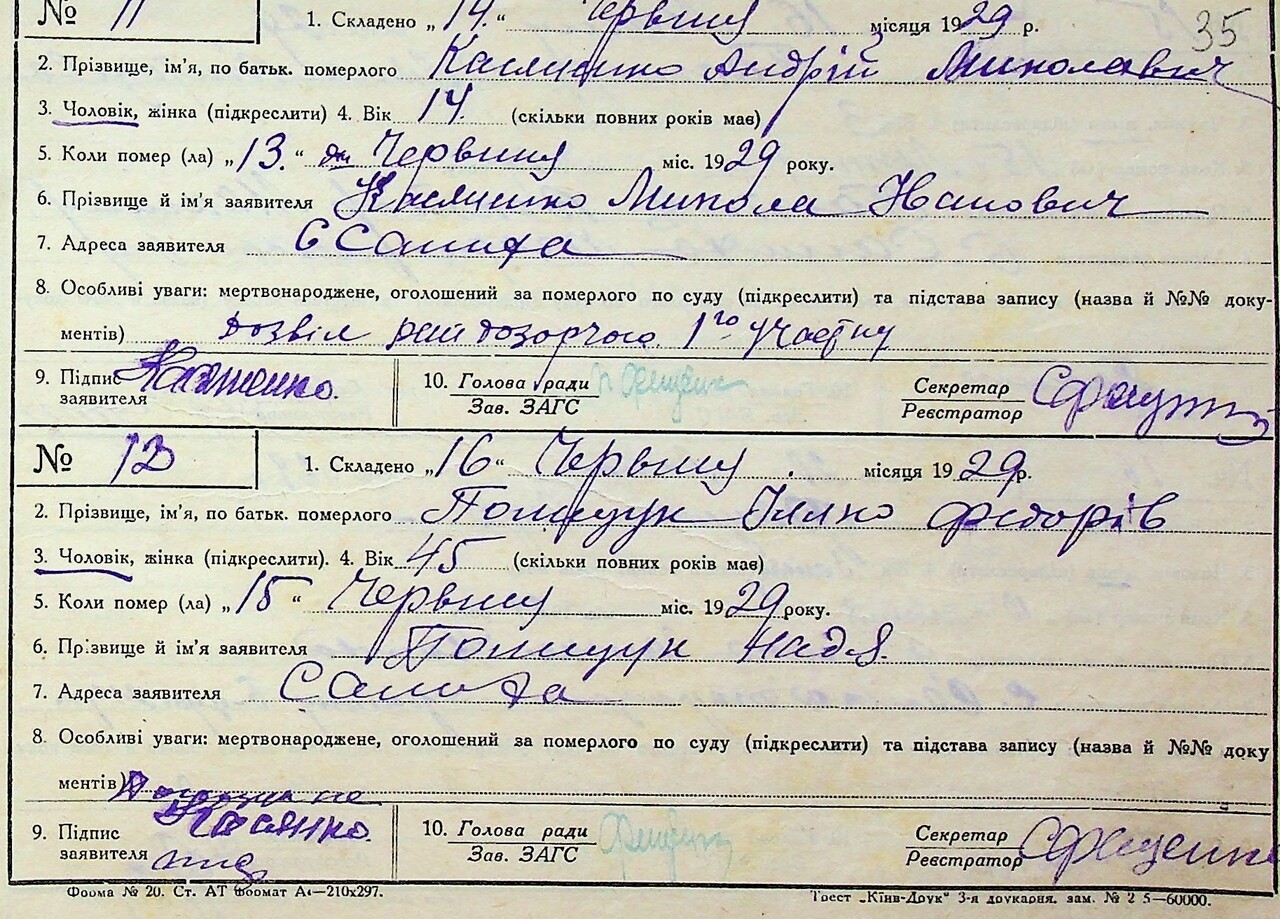 № 11 1. Складено „14.“ Червня місяця 1929 р. 35
2. Прізвище, ім'я, по батьк. померлого Касяненко Андрій Миколавич
3. Чоловік, жінка (підкреслити) 4. Вік 14. (скільки повних років має)
5. Коли помер (ла) „13.“ Червня міс. 1929 року.
6. Прізвище й ім'я заявителя Касяненко Микола Іванович
7. Адреса заявителя С Салиха
8. Особливі уваги: мертвонароджене, оголошений за померлого по суду (підкреслити) та підстава запису (назва й №№ доку-
ментів) дозвіл рай дозорчого 1го участку
9. Підпис заявителя
10. Голова ради
Зав. ЗАГС
Секретар
Реєстратор
№ 12 1. Складено „16“ Червня місяця 1929р.
2. Прізвище, ім'я, по батьк. померлого Поліщук Ілько Федорів
3. Чоловік, жінка (підкреслити). 4. Вік 45 (скільки повних років має)
5. Коли помер (ла) „15“ Червня міс. 1929 року.
6. Прізвище й ім'я заявителя Поліщук Надя.
7. Адреса заявителя Салиха
8. Особливі уваги: мертвонароджене, оголошений за померлого по суду (підкреслити) та підстава запису (назва й №№ доку
ментів)
9. Підпис заявителя
10. Голова ради
Зав. ЗАГС
Секретар
Реєстратор
Форма № 20. Ст. АТ формат А4—210х297. Трест „Київ-Друк“ 3-я друкарня. зам. № 2 5—60000.